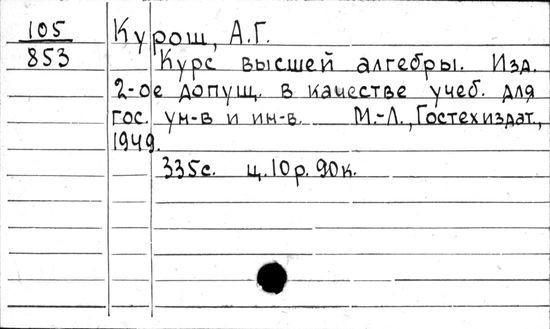 105
853
Курош, А.Г.
Курс высшей алгебры. Изд.
2-ое допущ. в качестве учеб. для
гос. ун-в и ин-в. М.-Л., Гостехиздат.,
1949.
335с. ц.10р.90к.